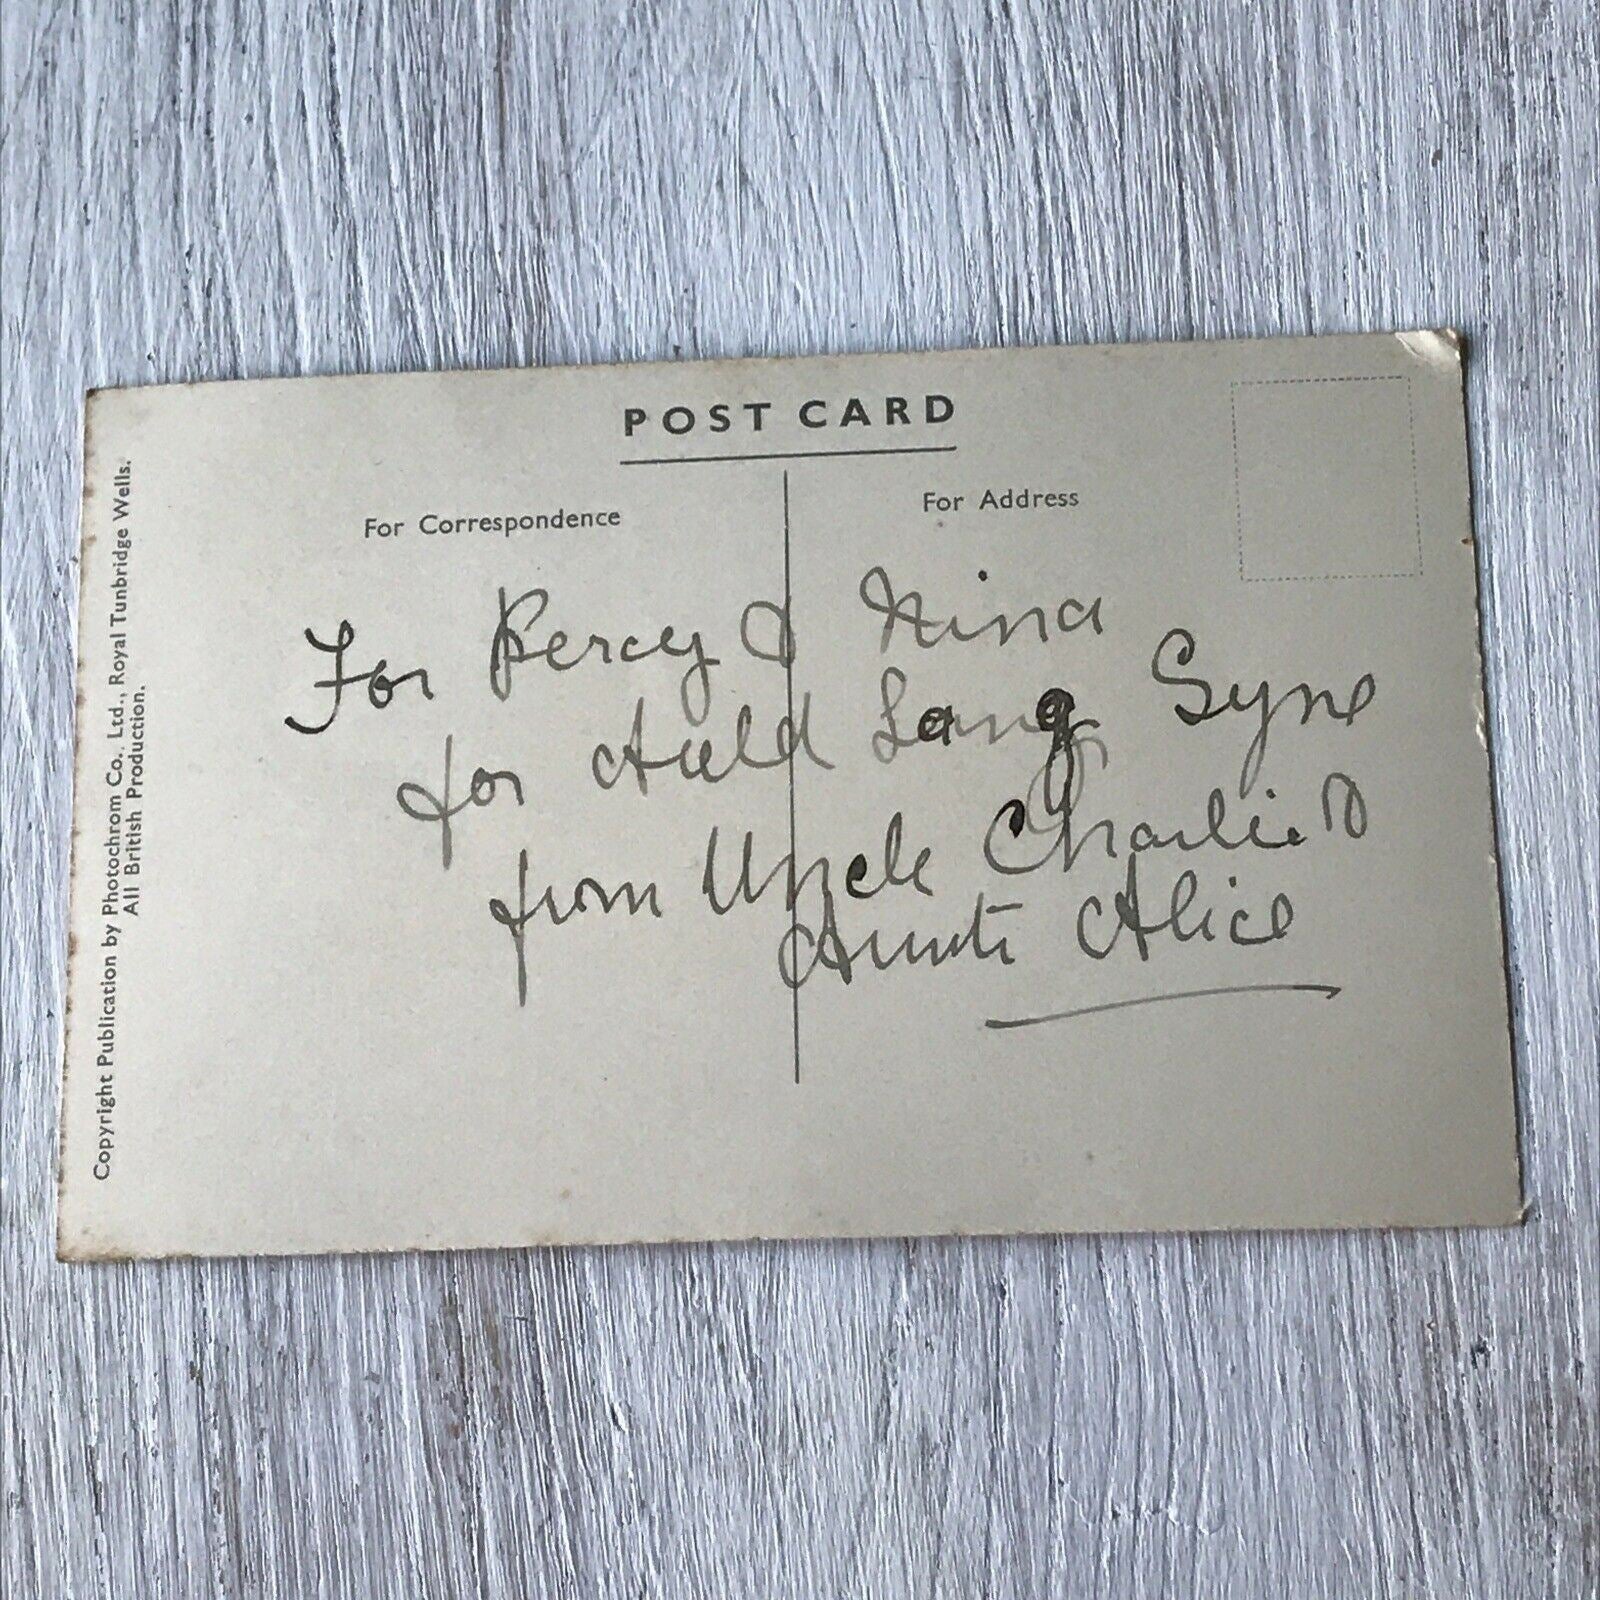 POST CARD
For Correspondence
For Address
For Percy & Nina
for Auld Lang Syne
from Uncle Charlie &
Aunti Alice
Copyright Publication by Photochrom Co., Ltd., Royal Tunbridge Wells.
All British Production.